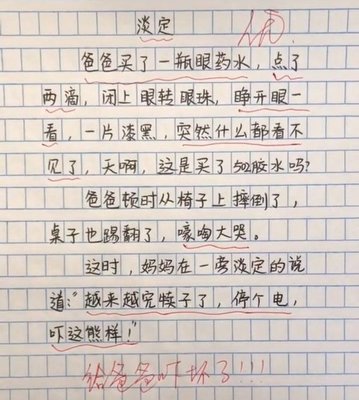 淡定
优
爸爸买了一瓶眼药水，点了
两滴，闭上眼转眼珠，睁开眼一
看，一片漆黑，突然什么都看不
见了，天啊，这是买了502胶水吗？
爸爸顿时从椅子上摔倒了，
桌子也踢翻了，嚎啕大哭。
这时，妈妈在一旁淡定的说
道：“越来越完犊子了，停个电，
吓这熊样！”
给爸爸吓坏了！！！